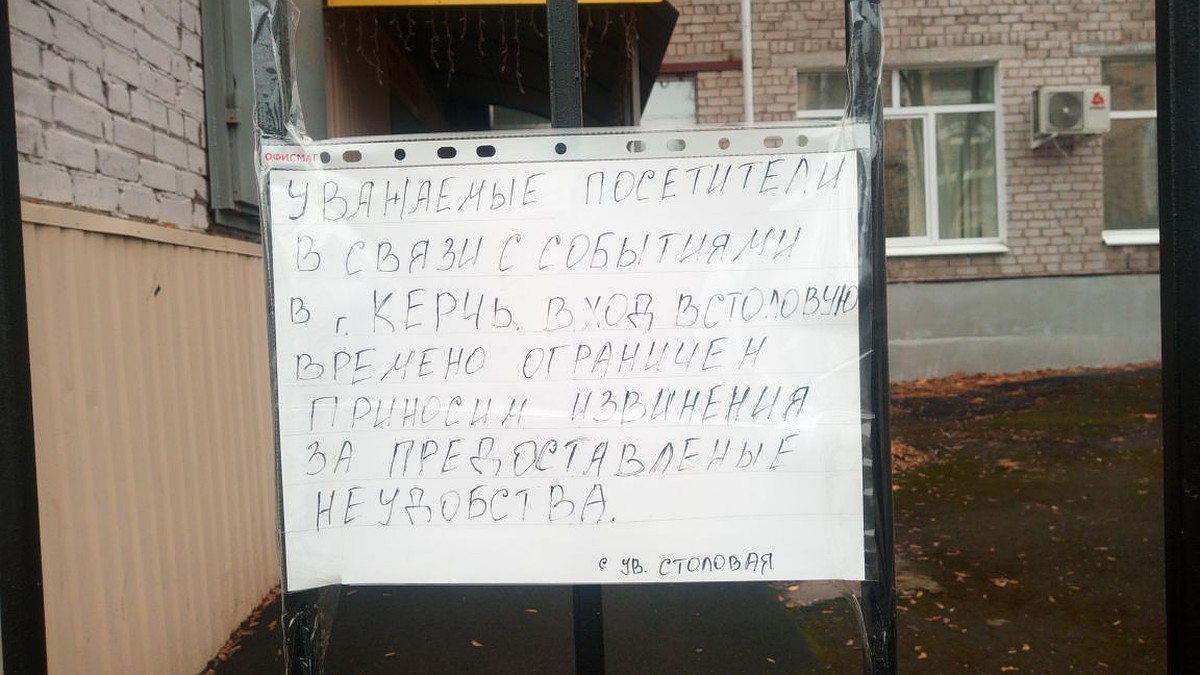 ОФИСМАГ
УВАЖАЕМЫЕ ПОСЕТИТЕЛИ
В СВЯЗИ С СОБЫТИЯМИ
В г. КЕРЧЬ. ВХОД В СТОЛОВУЮ
ВРЕМЕНО ОГРАНИЧЕН
ПРИНОСИМ ИЗВИНЕНИЯ
ЗА ПРЕДОСТАВЛЕНЫЕ
НЕУДОБСТВА.
С УВ. СТОЛОВАЯ